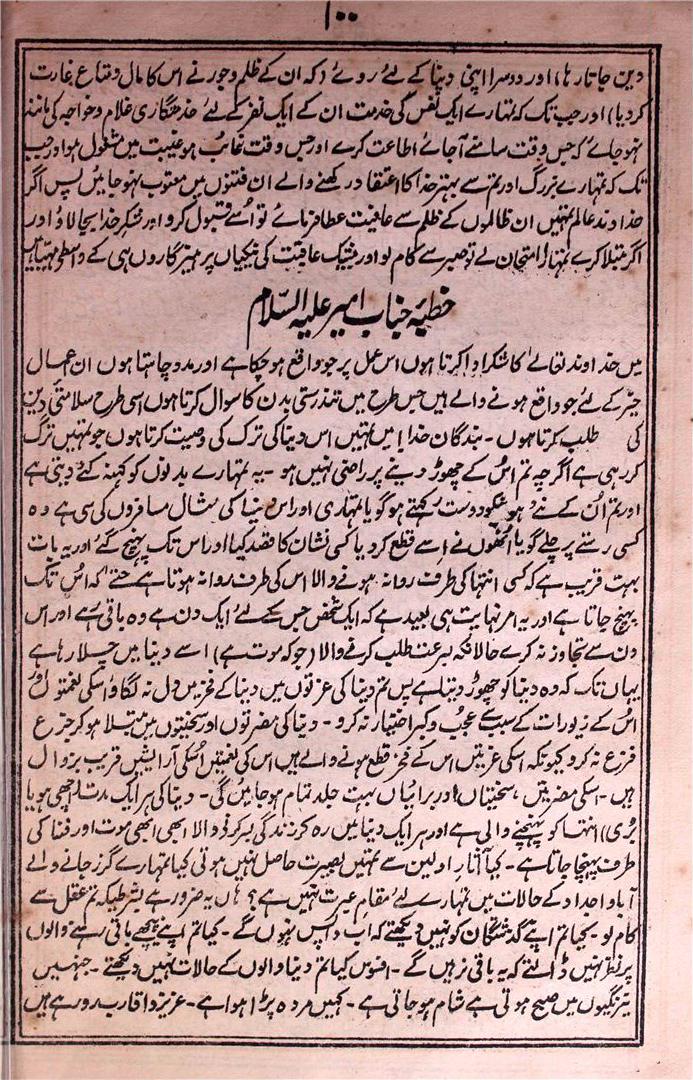 ۱۰۰
دین جاتا رہا) اور دوسرا اپنی دنیا کے لئے روئے (کہ ان کے ظلم و جور نے اس کا مال و متاع غارت
کر دیا) اور جب تک کہ تمہارے ایک نفس کی خدمت ان کے ایک نفر کے لئے خدمتگاری غلام و خواجہ کی مانند
نہو جائے کہ جس وقت سامنے آجائے اطاعت کرے اور جس وقت غائب ہو غیبت میں مشغول ہو اور جب
تک کہ تمہارے بزرگ اور تم سے بہتر خدا کا اعتقاد رکھنے والے ان فتنوں میں معتوب نہو جائیں پس اگر
خداوند عالم تمہیں ان ظالموں کے ظلم سے عافیت عطا فرمائے تو اُسے قبول کرو اور شکر خدا بجا لاؤ اور
اگر مبتلا کرے تمہارا امتحان لے تو صبر سے کام لو اور بیشک عاقبت کی نیکیاں پرہیزگاروں ہی کے واسطے مہیا ہیں
خطبۂ جناب امیر علیہ السّلام
میں خداوند تعالےٰ کا شکر ادا کرتا ہوں اس عمل پر جو واقع ہو چکا ہے اور مدد چاہتا ہوں ان اعمال
خیر کے لئے جو واقع ہونے والے ہیں جس طرح میں تندرستی بدن کا سوال کرتا ہوں اسی طرح سلامتی دین
کی طلب کرتا ہوں ۔ بندگان خدا! میں تمہیں اس دنیا کی ترک کی وصیت کرتا ہوں جو تمہیں ترک
کر رہی ہے اگرچہ تم اُس کے چھوڑ دینے پر راضی نہیں ہو ۔ یہ تمہارے بدنوں کو کہنہ کئے دیتی ہے
اور تم اُن کے نئے ہونیکو دوست رکھتے ہو گویا تمہاری اور اس دنیا کی مثال مسافروں کی سی ہے وہ
کسی رستے پر چلے گویا اُنھوں نے اِسے قطع کر دیا کسی نشان کا قصد کیا اور اس تک پہنچ گئے اور یہ بات
بہت قریب ہے کہ کسی انتہا کی طرف روانہ ہونے والا اس کی طرف روانہ ہوتا ہے حتےٰ کہ اُس تک
پہنچ جاتا ہے اور یہ امر نہایت ہی بعید ہے کہ ایک شخص جس کے لئے ایک دن ہے وہ باقی رہے اور اس
دن سے تجاوز نہ کرے حالانکہ بسرعت طلب کرنے والا (جو کہ موت ہے) اسے دنیا میں چلا رہا ہے
یہاں تک کہ وہ دنیا کو چھوڑ دیتا ہے پس تم دنیا کی عزتوں میں دنیا کے فخر میں دل نہ لگاؤ اسکی نعمتوں اور
اُس کے زیورات کے سبب سے عجب و کبر اختیار نہ کرو ۔ دنیا کی مضرتوں اور سختیوں میں مبتلا ہو کر جزع
فزع نہ کرو کیونکہ اسکی عزتیں اس کے فخر قطع ہونے والے ہیں اس کی نعمتیں اُسکی آرایشیں قریب بزوال
ہیں ۔ اسکی مضرتیں سختیاں اور برائیاں بہت جلد تمام ہو جائیں گی ۔ دنیا کی ہر ایک مدت (اچھی ہو یا
بُری) انتہا کو پہنچنے والی ہے اور ہر ایک دنیا میں رہ کر زندگی بسر کرنے والا ابھی ابھی موت اور فنا کی
طرف پہنچا جاتا ہے ۔ کیا آثارِ اولین سے تمہیں بصیرت حاصل نہیں ہوتی کیا تمہارے گزر جانے والے
آبا و اجداد کے حالات میں تمہارے لئے مقام عبرت نہیں ہے؟ ہاں یہ ضرور ہے بشرطیکہ تم عقل سے
کام لو ۔ کیا تم اپنے گذشتگان کو نہیں دیکھتے کہ اب واپس نہوں گے ۔ کیا تم اپنے پیچھے باقی رہنے والوں
پر نظر نہیں ڈالتے کہ یہ باقی نہ رہیں گے ۔ افسوس کیا تم دنیا والوں کے حالات نہیں دیکھتے ۔ جنہیں
نیرنگیوں میں صبح ہوتی ہے شام ہو جاتی ہے ۔ کہیں مردہ پڑا ہوا ہے ۔ عزیز و اقارب رو رہے ہیں